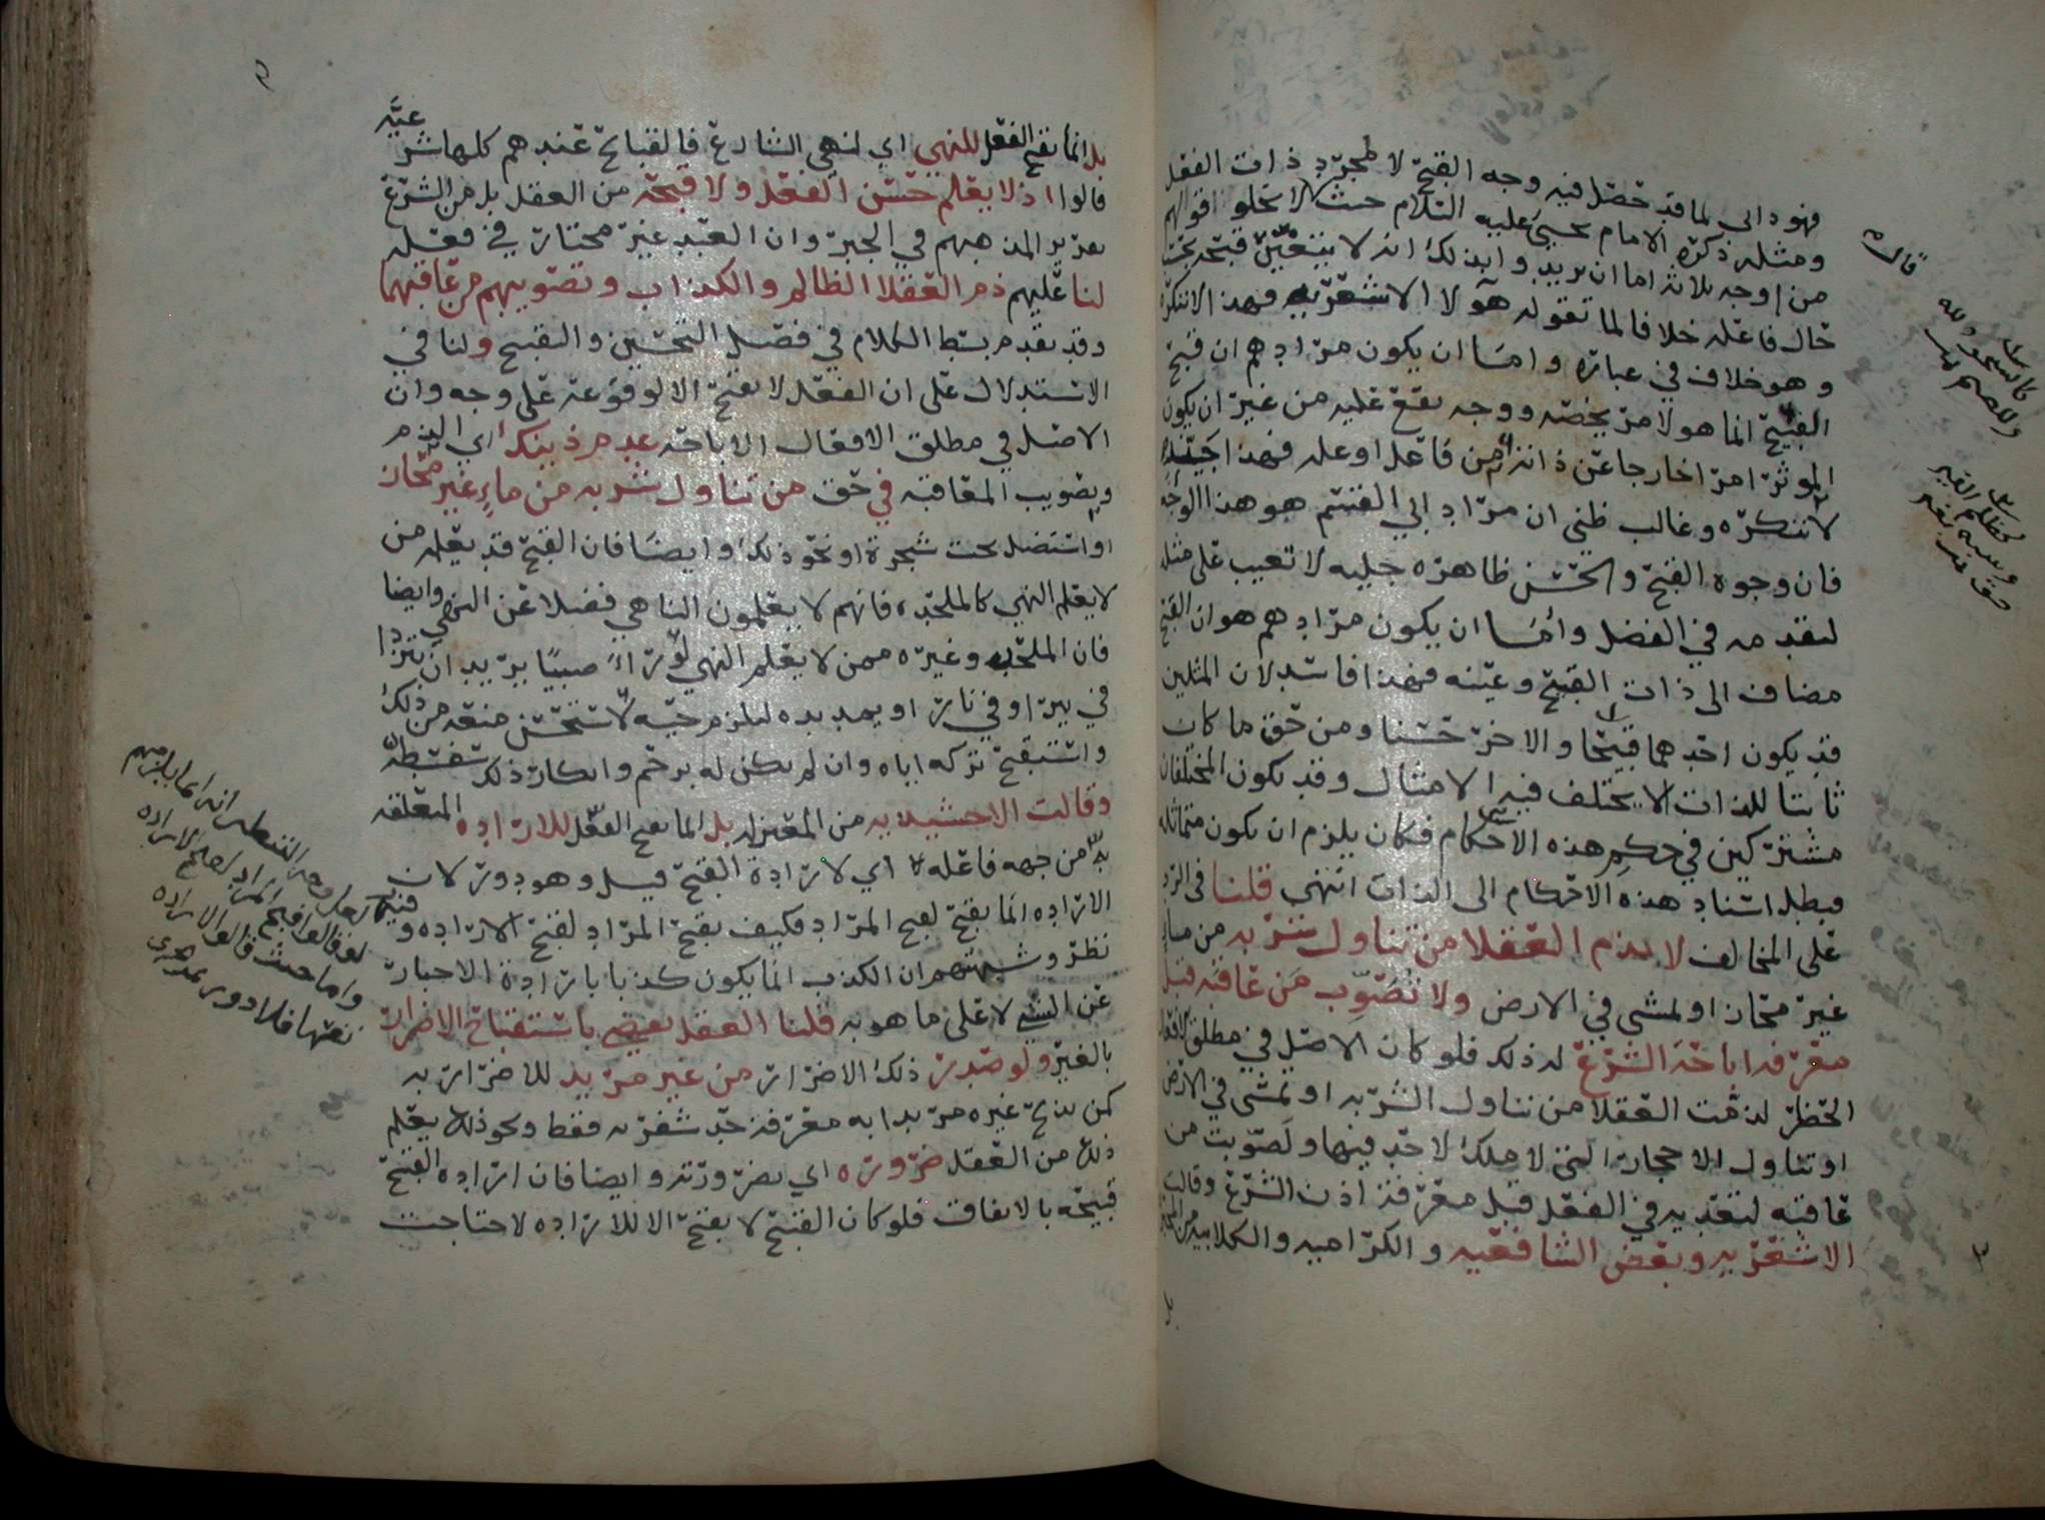 فهو دا الى لما قد حصل فيه وجه القبح لا لمجرد ذات الفعل
ومثله ذكره الامام يحيى عليه السلام حيث قال لا تخلو اقوالهم
من اوجه ثلاثة اما ان يريدوا بذلك انه لا يتعين قبحه بحسب
حال فاعله خلافا لما تقوله هؤلا الاشعرية فهذا لا ننكره
وهو خلاف في عباره واما ان يكون مرادهم ان قبح
القبيح انما هو لامر يخصه ووجه يقع عليه من غير ان يكون
الموثر امرا خارجا عن ذاته من فاعل او عله فهذا جيد
لا ننكره وغالب ظني ان مراد ابي القسم هو هذا الوجه
فان وجوه القبح والحسن ظاهره جليه لا تغيب على مثله
لتقدمه في الفضل واما ان يكون مرادهم هو ان القبح
مضاف الى ذات القبيح وعينه فهذا فاسد لان المثلين
قد يكون احدهما قبيحا والاخر حسنا ومن حق ما كان
ثابتا للذات لا يختلف فيه الامثال وقد يكون المختلفان
مشتركين في حكم هذه الاحكام فكان يلزم ان يكون متماثله
فبطل استناد هذه الاحكام الى الذات انتهى قلنا في الرد
على المخالف لا يذم العقلا من تناول شربه من ماء
غير محاز او لمشي في الارض ولا تصوب من عاقبه قبل
معرفه اباحة الشرع له ذلك فلو كان الاصل في مطلق الافعال
الحظر لذمت العقلا من تناول الشربه او تمشى في الارض
او تناول الاحجار التي لا ملك لاحد فيها ولصوبت من
عاقبه لتعديه في الفعل قبل معرفة اذن الشرع وقالت
الاشعريه وبعض الشافعيه والكراميه والكلابيه من المجبره
بل انما يقبح الفعل للنهي اي لنهي الشارع فالقبائح عندهم كلها شرعيه
قالوا اذ لا يعلم حسن الفعل ولا قبحه من العقل بل من الشرع
لمذهبهم في الجبر وان العبد غير مختار في فعله
لنا عليهم ذم العقلا الظالم والكذاب وتصويبهم من عاقبهما
وقد تقدم بسط الكلام في فصل التحسين والتقبيح ولنا في
الاستدلال على ان الفعل لا يقبح الا لوقوعه على وجه وان
الاصل في مطلق الافعال الاباحه عدم ذينك اي الذم
وتصويب المعاقبه في حق من تناول شربه من ماء غير محاز
او استضل تحت شجرة او نحو ذلك وايضا فان القبح قد يعلمه من
لا يعلم النهي كالملحده فانهم لا يعلمون الناهي فضلا عن النهي وايضا
فان الملحد وغيره ممن لا يعلم النهي لو راى صبيا يريد ان يتردا
في بير او في نار او يمد يده ليلزم حيه لاستحسن منعه من ذلك
واستقبح تركه اياه وان لم يكن له برحم وانكار ذلك سفسطه
وقالت الاخشيديه من المعتزله بل انما يقبح الفعل للاراده المتعلقه
به من جهه فاعله اي لارادة القبح قيل وهو دور لان
الاراده انما يقبح لقبح المراد فكيف يقبح المراد لقبح الاراده وفيه
نظر وشبهتهم ان الكذب انما يكون كذبا بارادة الاخبار
عن الشي لا على ما هو به قلنا العقل يقضي باستقباح الاضرار
بالغير ولو صدر ذلك الاضرار من غير مريد للاضرار به
كمن يذبح غيره مريدا به معرفة حد شفرته فقط ونحو ذلك يعلم
ذلك من العقل ضروره اي بضرورته وايضا فان ارادة القبيح
قبيحه بالاتفاق فلو كان القبيح لا يقبح الا للاراده لاحتاجت